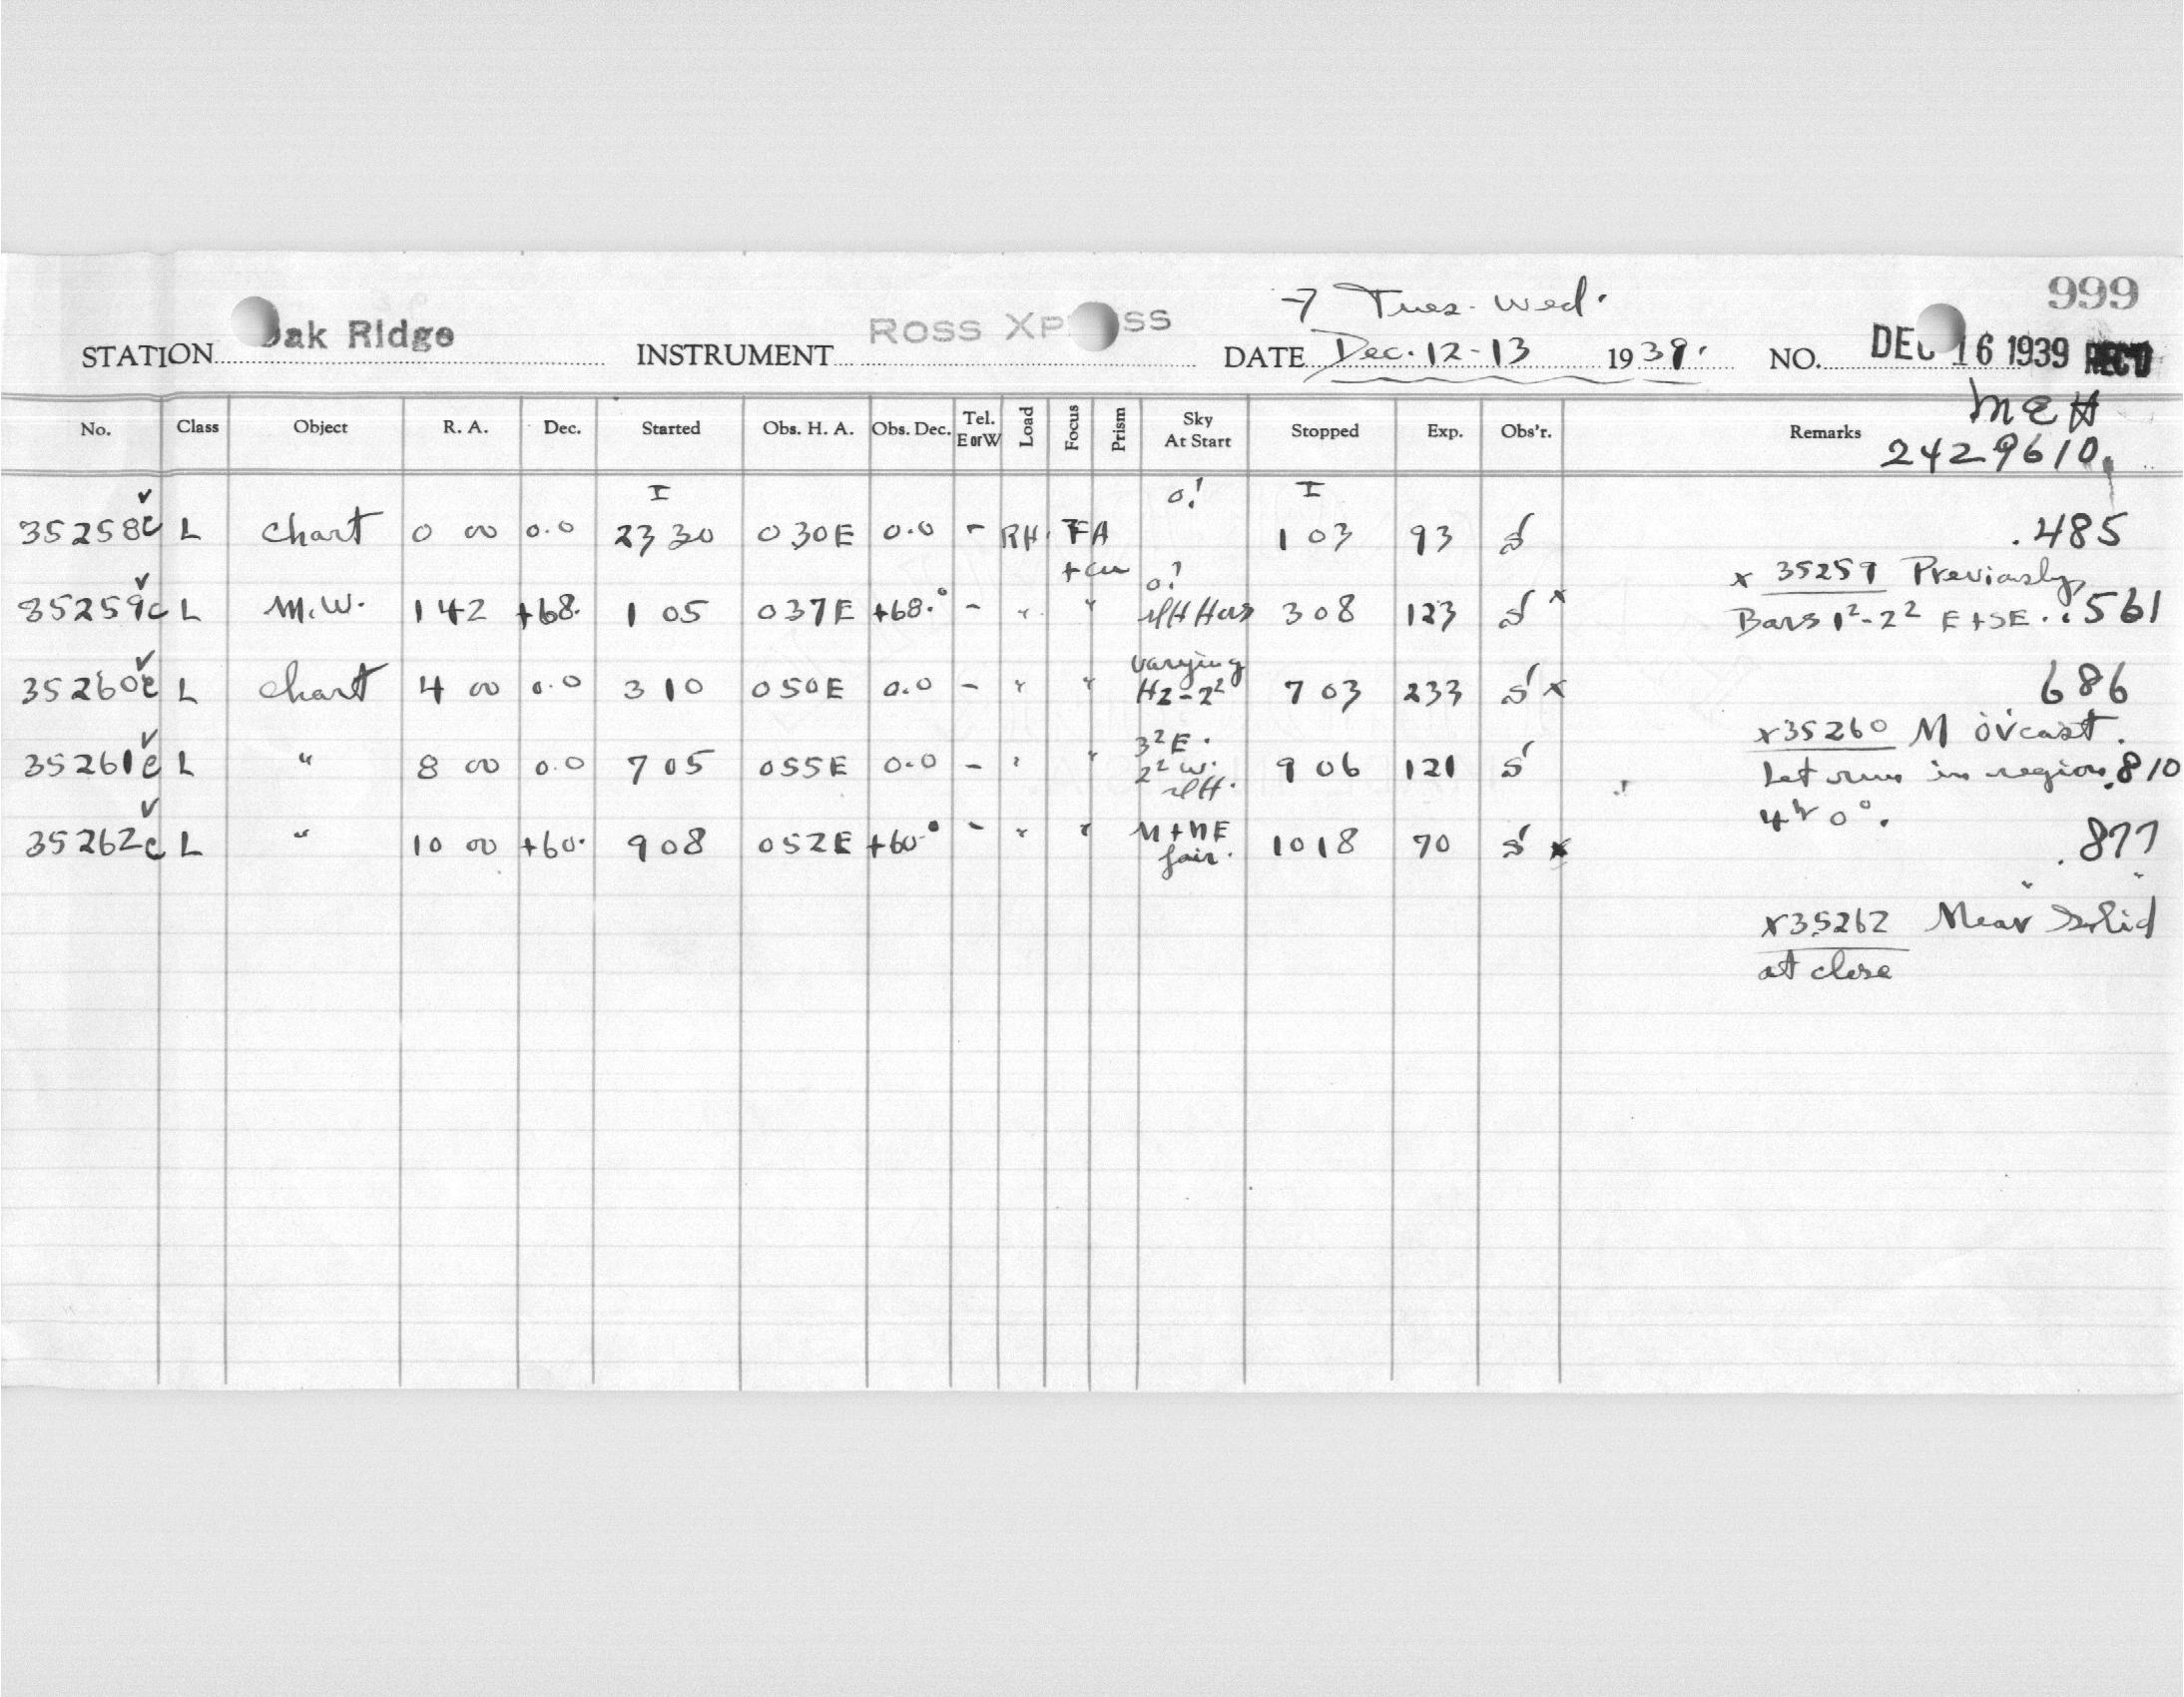 999
Tues. Wed.
STATION Oak Ridge INSTRUMENT ROSS XPRESS DATE Dec. 12-13 1939. NO. DEC 16 1939 REC'D
MEH
No. Class Object R. A. Dec. Started Obs. H. A. Obs. Dec. Tel. E or W Load Focus Prism Sky At Start Stopped Exp. Obs'r. Remarks
2429610.
I o! I
35258c L Chart 0 00 0.0 23 30 0 30E 0.0 - RH. FA 1 03 93 S .485
+cu o! x 35259 Previously
35259c L M.W. 1 42 +68. 1 05 0 37E +68.° - " " 3 08 123 S x Bars 1²-2² E+SE. .561
varying
35260c L Chart 4 00 0.0 3 10 0 50E 0.0 - " " Hz-2² 7 03 233 S x 686
3²E. x35260 M ov'cast.
35261c L " 8 00 0.0 7 05 0 55E 0.0 - " " 2²W. 9 06 121 S Let run in region .810
4h 0°.
35262c L " 10 00 +60. 9 08 0 52E +60.° - " " M+NE fair. 10 18 70 S x .877
x35262 Near solid
at close